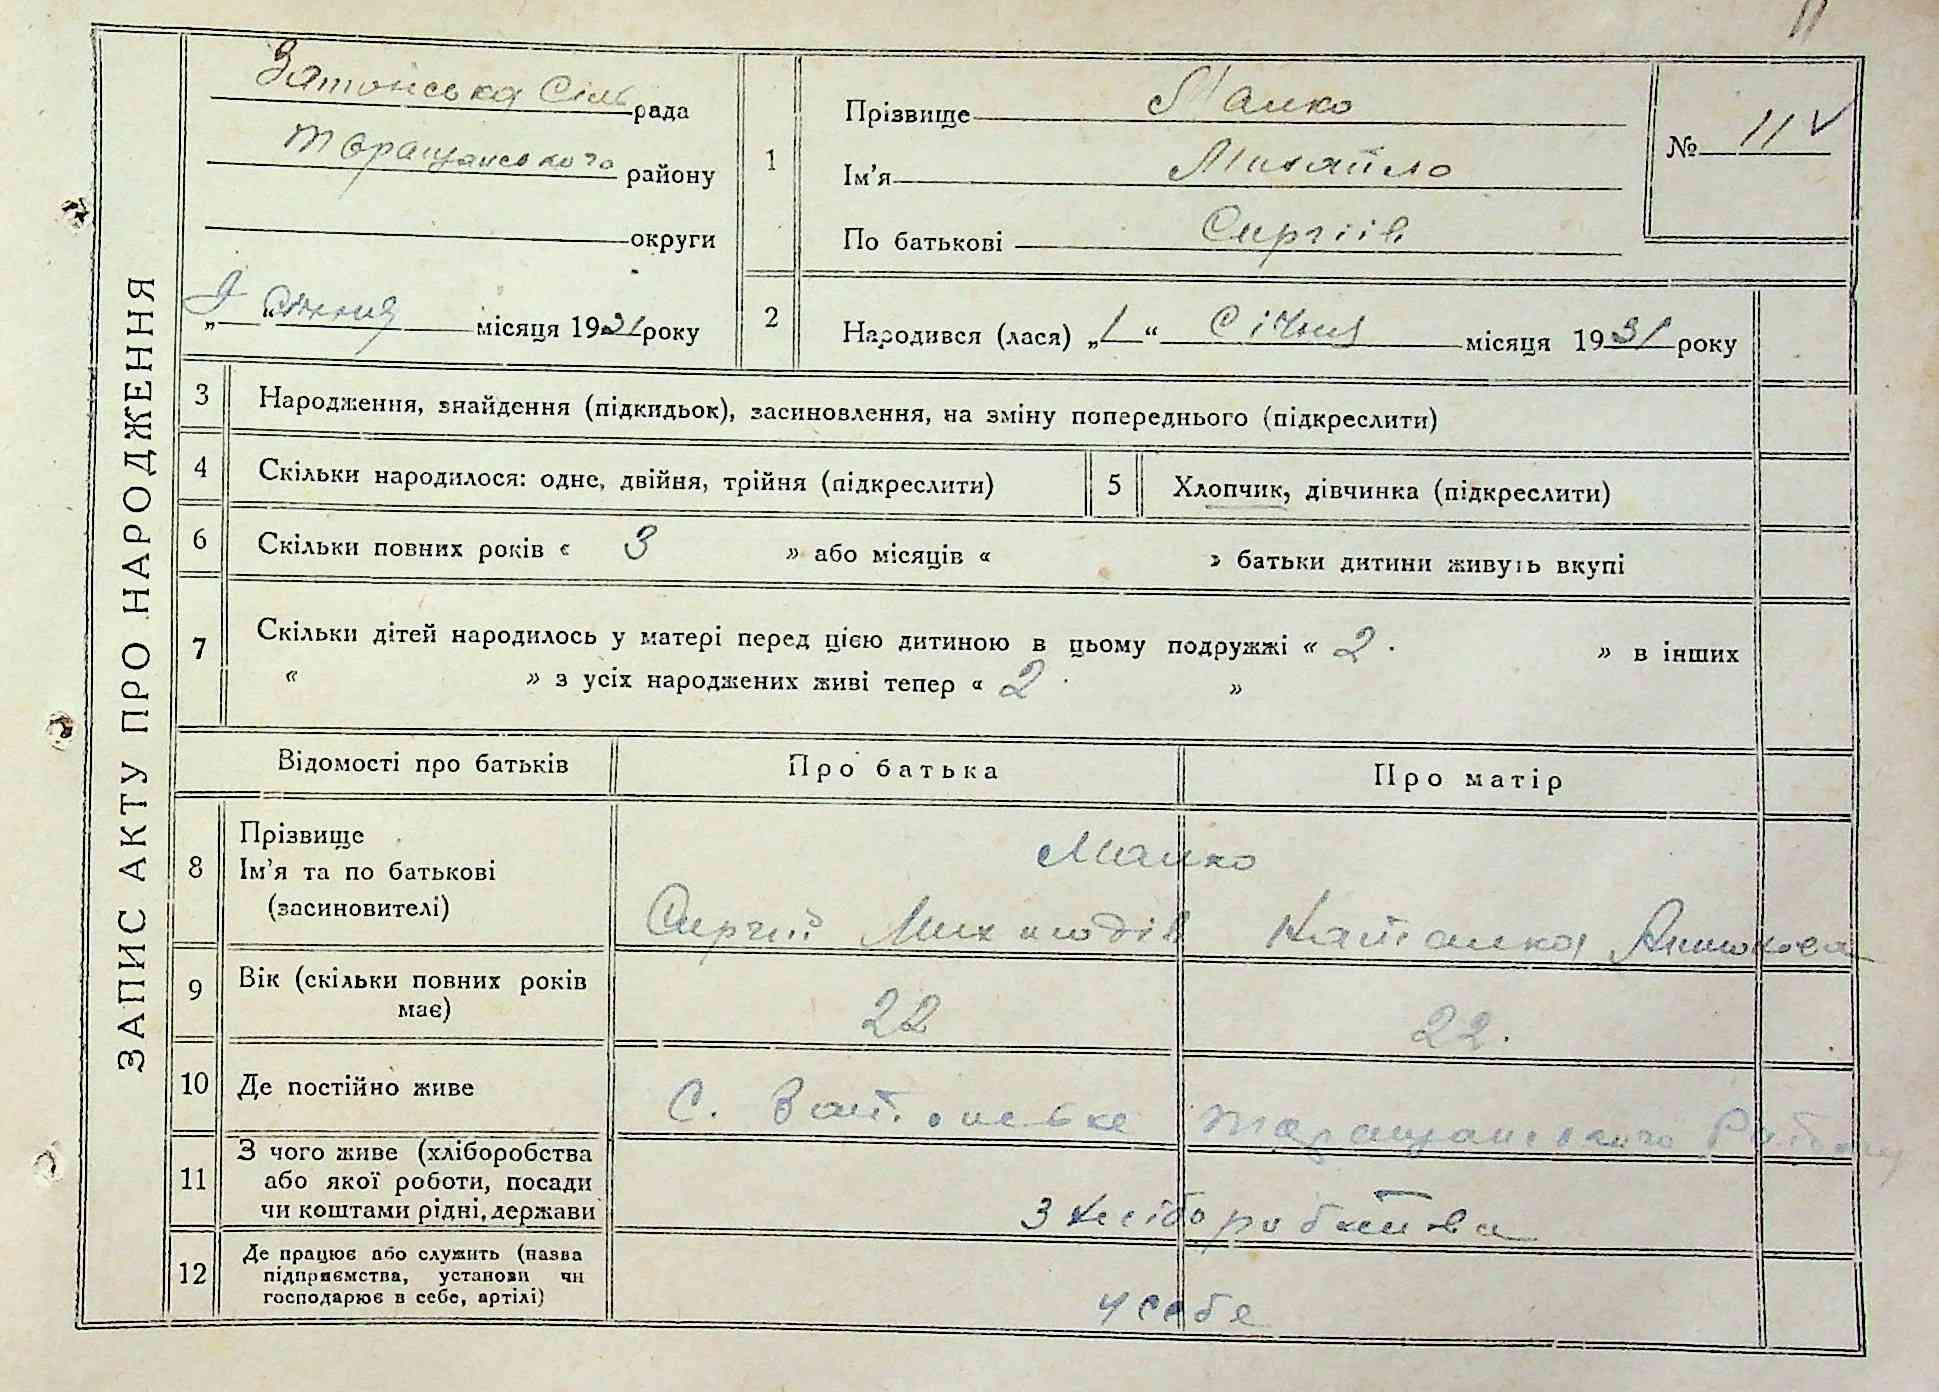 ЗАПИС АКТУ ПРО НАРОДЖЕННЯ
Затонська Сіль рада
Таращанського району
округи
„ “ Січня місяця 1931 року
1
Прізвище Малко
Ім'я Михайло
По батькові Сиргіїв
№ 11
2
Народився (лася) „1“ Січня місяця 1931 року
3 Народження, знайдення (підкидьок), засиновлення, на зміну попереднього (підкреслити)
4 Скільки народилося: одне, двійня, трійня (підкреслити)
5 Хлопчик, дівчинка (підкреслити)
6 Скільки повних років « 3 » або місяців « » батьки дитини живуть вкупі
7 Скільки дітей народилось у матері перед цією дитиною в цьому подружжі « 2 » в інших
« » з усіх народжених живі тепер « 2 »
Відомості про батьків Про батька Про матір
8 Прізвище
Ім'я та по батькові
(засиновителі)
Малко
Сиргій
9 Вік (скільки повних років
має)
22 22.
10 Де постійно живе
С. Таращанського Району
11 З чого живе (хліборобства
або якої роботи, посади
чи коштами рідні, держави
З хліборобства
12 Де працює або служить (назва
підприємства, установи чи
господарює в себе, артілі)
у себе